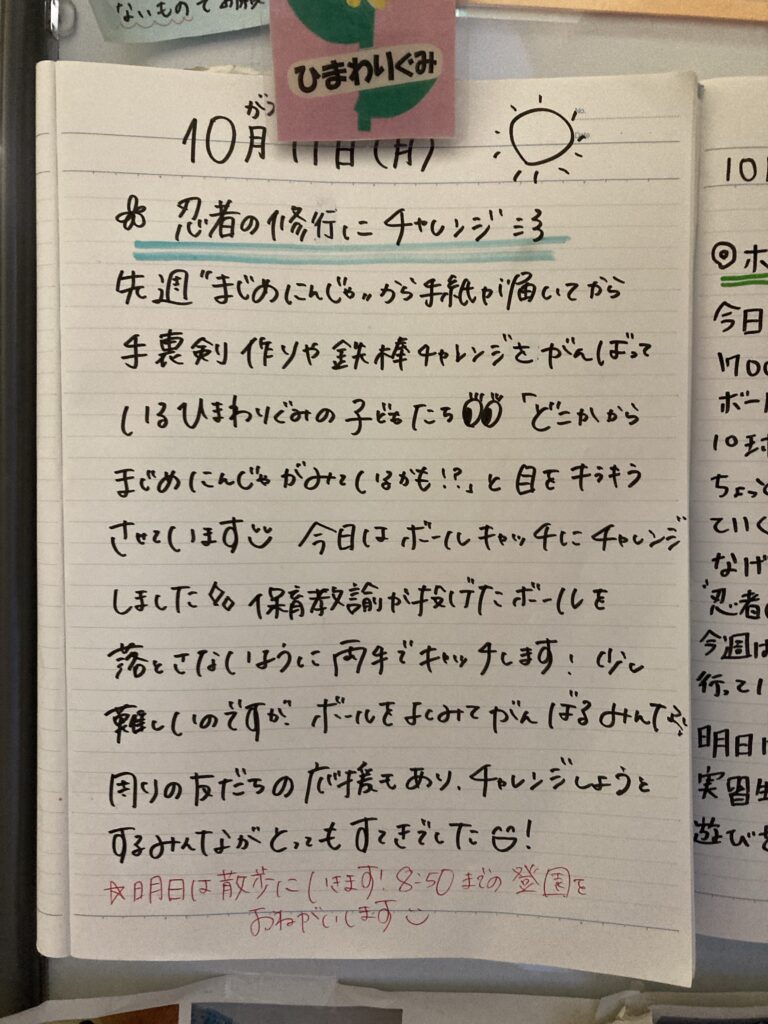 ないもので
ひまわりぐみ
10月 17日(月)
忍者の修行にチャレンジ
先週"まじめにんじゃ"から手紙が届いてから
手裏剣作りや鉄棒チャレンジをがんばって
いるひまわりぐみの子どもたち 「どこかから
まじめにんじゃがみているかも!?」と目をキラキラ
させています 今日はボールキャッチにチャレンジ
しました 保育教諭が投げたボールを
落とさないように両手でキャッチします! 少し
難しいのですが、ボールをよくみてがんばるみんな♪
周りの友だちの応援もあり、チャレンジしようと
するみんながとってもすてきでした!
☆明日は散歩にいきます! 8:50までの登園を
おねがいします
10
ホ
今日
1700
ボー
10球
ちょっと
ていく
なげ
"忍者
今週は
行ってい
明日
実習生
遊びを